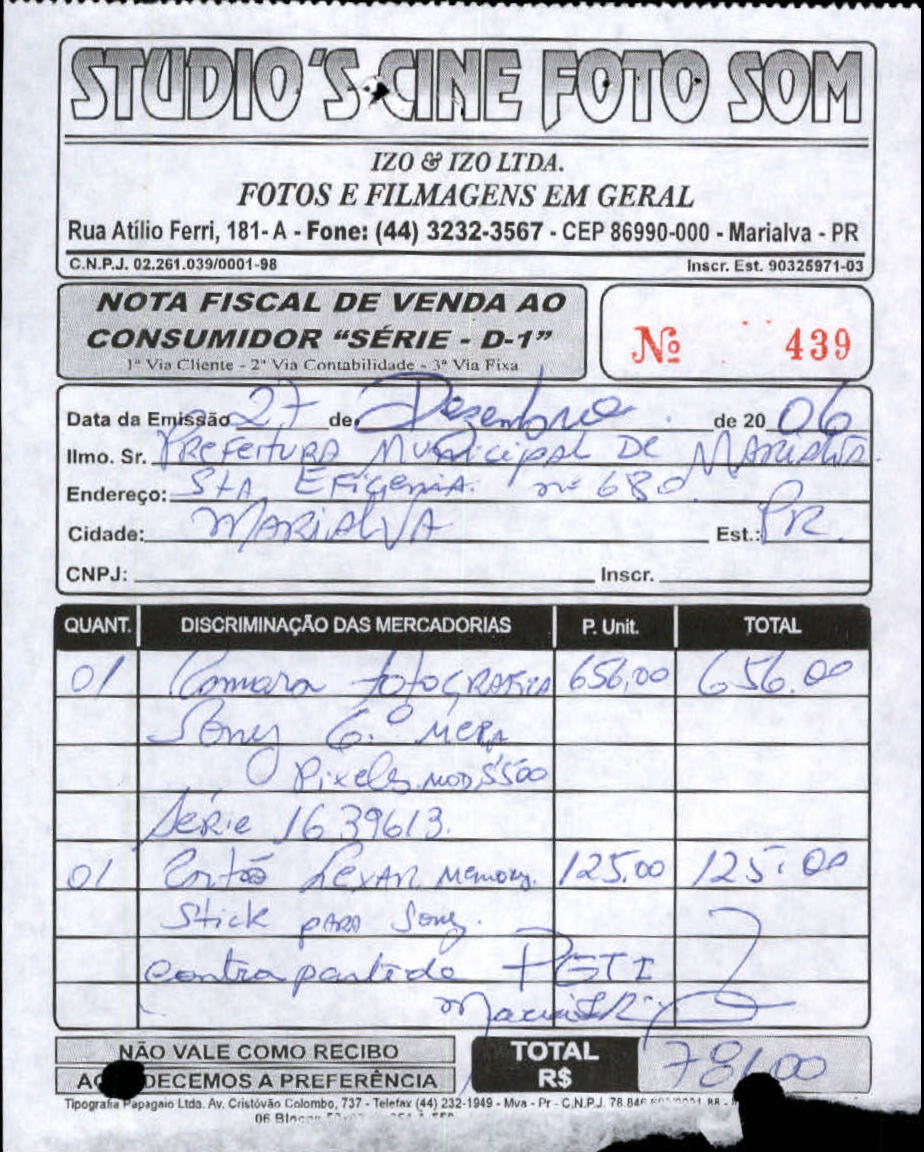 STUDIO'S CINE FOTO SOM
IZO & IZO LTDA.
FOTOS E FILMAGENS EM GERAL
Rua Atílio Ferri, 181- A - Fone: (44) 3232-3567 - CEP 86990-000 - Marialva - PR
C.N.P.J. 02.261.039/0001-98 Inscr. Est. 90325971-03
NOTA FISCAL DE VENDA AO
CONSUMIDOR “SÉRIE - D-1”
1ª Via Cliente - 2ª Via Contabilidade - 3ª Via Fixa
Nº 439
Data da Emissão 27 de Dezembro de 20 06
Ilmo. Sr. Prefeitura Municipal De Marialva
Endereço: Sta Efigenia. nº 680
Cidade: Marialva Est.: PR
CNPJ: Inscr.
QUANT. DISCRIMINAÇÃO DAS MERCADORIAS P. Unit. TOTAL
01 Camara fotografica 656,00 656.00
Sony 6.0 mega
Pixels mod S500
Série 1639613.
01 Cartão Lexar Memory 125.00 125.00
Stick para Sony.
contra partida PETI
NÃO VALE COMO RECIBO
DECEMOS A PREFERÊNCIA
TOTAL R$ 781,00
Tipografia Papagaio Ltda. Av. Cristóvão Colombo, 737 - Telefax (44) 232-1949 - Mva - Pr - C.N.P.J. 78.846
06